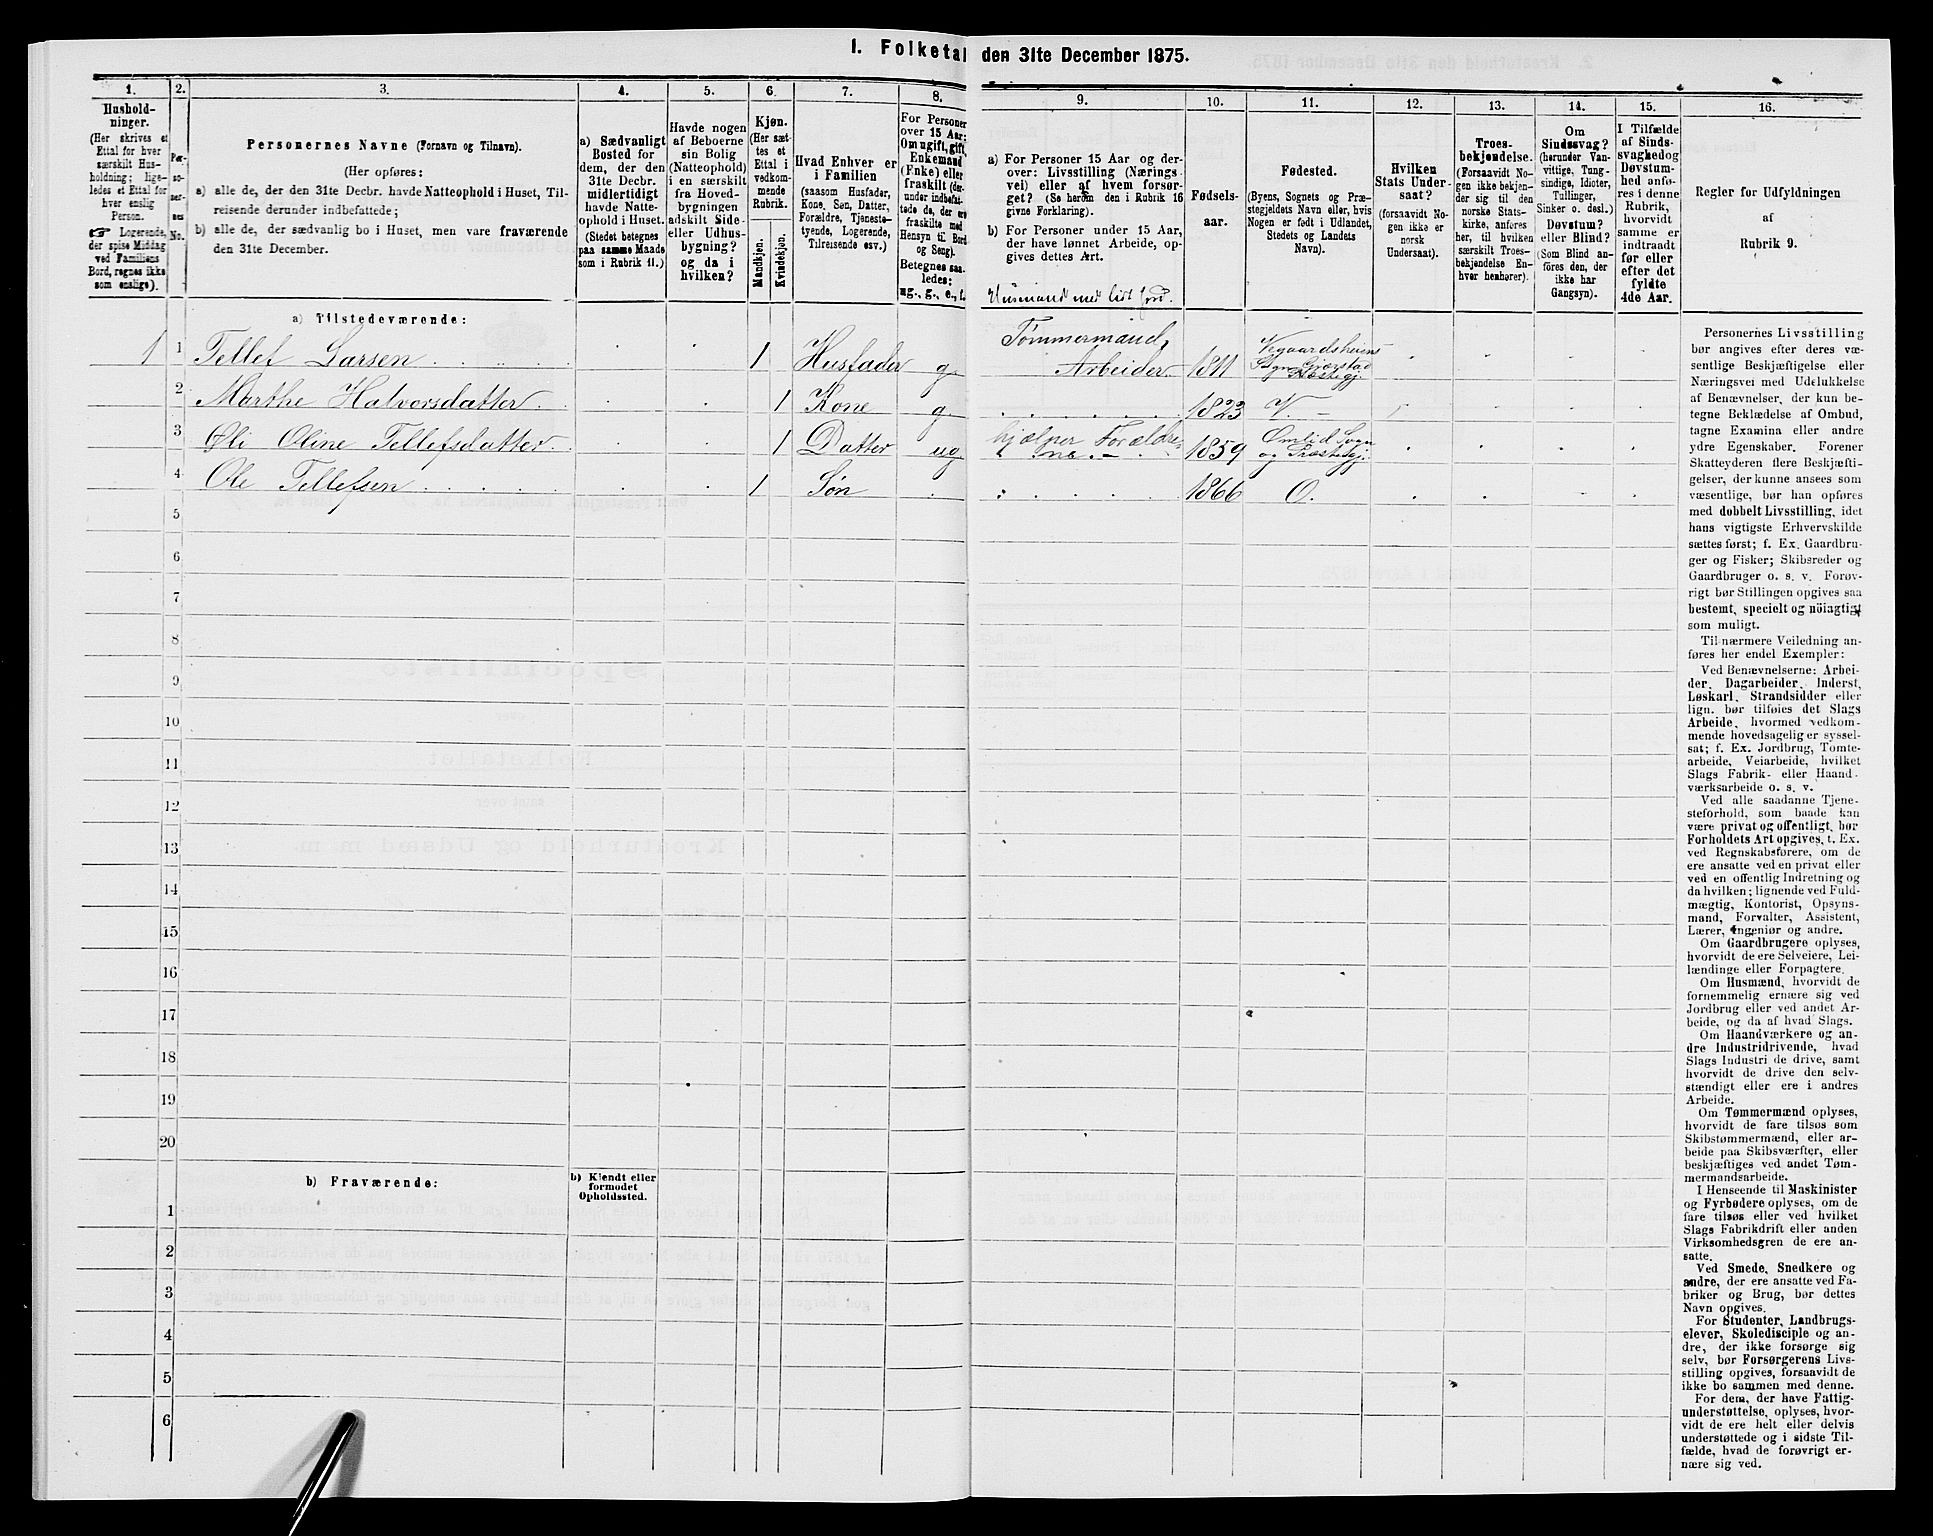 1. Folketal den 31te December 1875.
1.
Hushold-
ninger.
(Her skrives et
Ettal for hver
særskilt Hus-
holdning; lige-
ledes et Ettal for
hver enslig
Person.
☞ Logerende,
der spise Middag
ved Familiens
Bord, regnes ikke
som enslige).
2.
Per-
so-
ner-
nes
No.
3.
Personernes Navne (Fornavn og Tilnavn).
(Her opføres:
a) alle de, der den 31te Decbr. havde Natteophold i Huset, Til-
reisende derunder indbefattede;
b) alle de, der sædvanlig bo i Huset, men vare fraværende
den 31te December.
4.
a) Sædvanligt
Bosted for
dem, der den
31te Decbr.
midlertidigt
havde Natte-
ophold i Huset.
(Stedet betegnes
paa samme Maade
som i Rubrik 11.)
5.
Havde nogen
af Beboerne
sin Bolig
(Natteophold)
i en særskilt
fra Hoved-
bygningen
adskilt Side-
eller Udhus-
bygning?
og da i
hvilken?
6.
Kjøn.
(Her sæt-
tes et
Ettal i
vedkom-
mende
Rubrik.
Mandkjøn.
Kvindekjøn.
7.
Hvad Enhver er
i Familien
(saasom Husfader,
Kone, Søn, Datter,
Forældre, Tjeneste-
tyende, Logerende,
Tilreisende osv.)
8.
For Personer
over 15 Aar:
Om ugift, gift,
Enkemand
(Enke) eller
fraskilt (der-
under indbefat-
tede de, der ere
fraskilte med
Hensyn til Bord
og Seng).
Betegnes saa-
ledes:
ug., g., e., f.
9.
a) For Personer 15 Aar og der-
over: Livsstilling (Nærings-
vei) eller af hvem forsør-
get? (Se herom den i Rubrik 16
givne Forklaring).
b) For Personer under 15 Aar,
der have lønnet Arbeide, op-
gives dettes Art.
Husmand med lidt jord.
10.
Fødsels-
aar.
11.
Fødested.
(Byens, Sognets og Præ-
stegjeldets Navn eller, hvis
Nogen er født i Udlandet,
Stedets og Landets
Navn).
12.
Hvilken
Stats Under-
saat?
(forsaavidt No-
gen ikke er
norsk
Undersaat).
13.
Troes-
bekjendelse.
(Forsaavidt No-
gen ikke bekjen-
der sig til den
norske Stats-
kirke, anføres
her, til hvilken
særskilt Troes-
bekjendelse En-
hver henhører).
14.
Om
Sindssvag?
(herunder Van-
vittige, Tung-
sindige, Idioter,
Tullinger,
Sinker o. desl.)
Døvstum?
eller Blind?
(Som Blind an-
føres den, der
ikke har
Gangsyn).
15.
I Tilfælde
af Sinds-
svaghed og
Døvstum-
hed anfø-
res i denne
Rubrik,
hvorvidt
samme er
indtraadt
før eller
efter det
fyldte
4de Aar.
16.
Regler for Udfyldningen
af
Rubrik 9.
a) Tilstedeværende:
1 1 Tellef Larsen 1 Husfader g Tømmermand,
Arbeider 1811 Vegaardsheiens
Sogn Gjerstad
Præstegj.
2 Marthe Halvorsdatter 1 Kone g 1823 V.
3 Øli Oline Tellefsdatter 1 Datter ug hjælper Forældre
ne 1859 Omlid Sogn
og Præstegj.
4 Ole Tellefsen 1 Søn 1866 O.
5
6
7
8
9
10
11
12
13
14
15
16
17
18
19
20
b) Fraværende:
b) Kjendt eller
formodet
Opholdssted.
1
2
3
4
5
6
Personernes Livsstilling
bør angives efter deres væ-
sentlige Beskjæftigelse eller
Næringsvei med Udelukkelse
af Benævnelser, der kun be-
tegne Beklædelse af Ombud,
tagne Examina eller andre
ydre Egenskaber. Forener
Skatteyderen flere Beskjæfti-
gelser, der kunne ansees som
væsentlige, bør han opføres
med dobbelt Livsstilling, idet
hans vigtigste Erhvervskilde
sættes først; f. Ex. Gaardbru-
ger og Fisker; Skibsreder og
Gaardbruger o. s. v. Forøv-
rigt bør Stillingen opgives saa
bestemt, specielt og nöiagtigt
som muligt.
Til nærmere Veiledning an-
føres her endel Exempler:
Ved Benævnelserne: Arbei-
der, Dagarbeider, Inderst,
Løskarl, Strandsidder eller
lign. bør tilføies det Slags
Arbeide, hvormed vedkom-
mende hovedsagelig er syssel-
sat; f. Ex. Jordbrug, Tomte-
arbeide, Veiarbeide, hvilket
Slags Fabrik- eller Haand-
værksarbeide o. s. v.
Ved alle saadanne Tjene-
steforhold, som baade kan
være privat og offentligt, bør
Forholdets Art opgives, t. Ex.
ved Regnskabsførere, om de
ere ansatte ved en privat eller
ved en offentlig Indretning og
da hvilken; lignende ved Fuld-
mægtig, Kontorist, Opsyns-
mand, Forvalter, Assistent,
Lærer, Ingeniør og andre.
Om Gaardbrugere oplyses,
hvorvidt de ere Selveiere, Lei-
lændinge eller Forpagtere.
Om Husmænd, hvorvidt de
fornemmelig ernære sig ved
Jordbrug eller ved andet Ar-
beide, og da af hvad Slags.
Om Haandværkere og an-
dre Industridrivende, hvad
Slags Industri de drive, samt
hvorvidt de drive den selv-
stændigt eller ere i andres
Arbeide.
Om Tømmermænd oplyses,
hvorvidt de fare tilsøs som
Skibstømmermænd, eller ar-
beide paa Skibsværfter, eller
beskjæftiges ved andet Tøm-
mermandsarbeide.
I Henseende til Maskinister
og Fyrbødere oplyses, om de
fare tilsøs eller ved hvilket
Slags Fabrikdrift eller anden
Virksomhedsgren de ere an-
satte.
Ved Smede, Snedkere og
andre, der ere ansatte ved Fa-
briker og Brug, bør dettes
Navn opgives.
For Studenter, Landbrugs-
elever, Skoledisciple og an-
dre, der ikke forsørge sig
selv, bør Forsørgerens Livs-
stilling opgives, forsaavidt de
ikke bo sammen med denne.
For dem, der have Fattig-
understøttelse, oplyses, hvor-
vidt de ere helt eller delvis
understøttede og i sidste Til-
fælde, hvad de forøvrigt er-
nære sig ved.